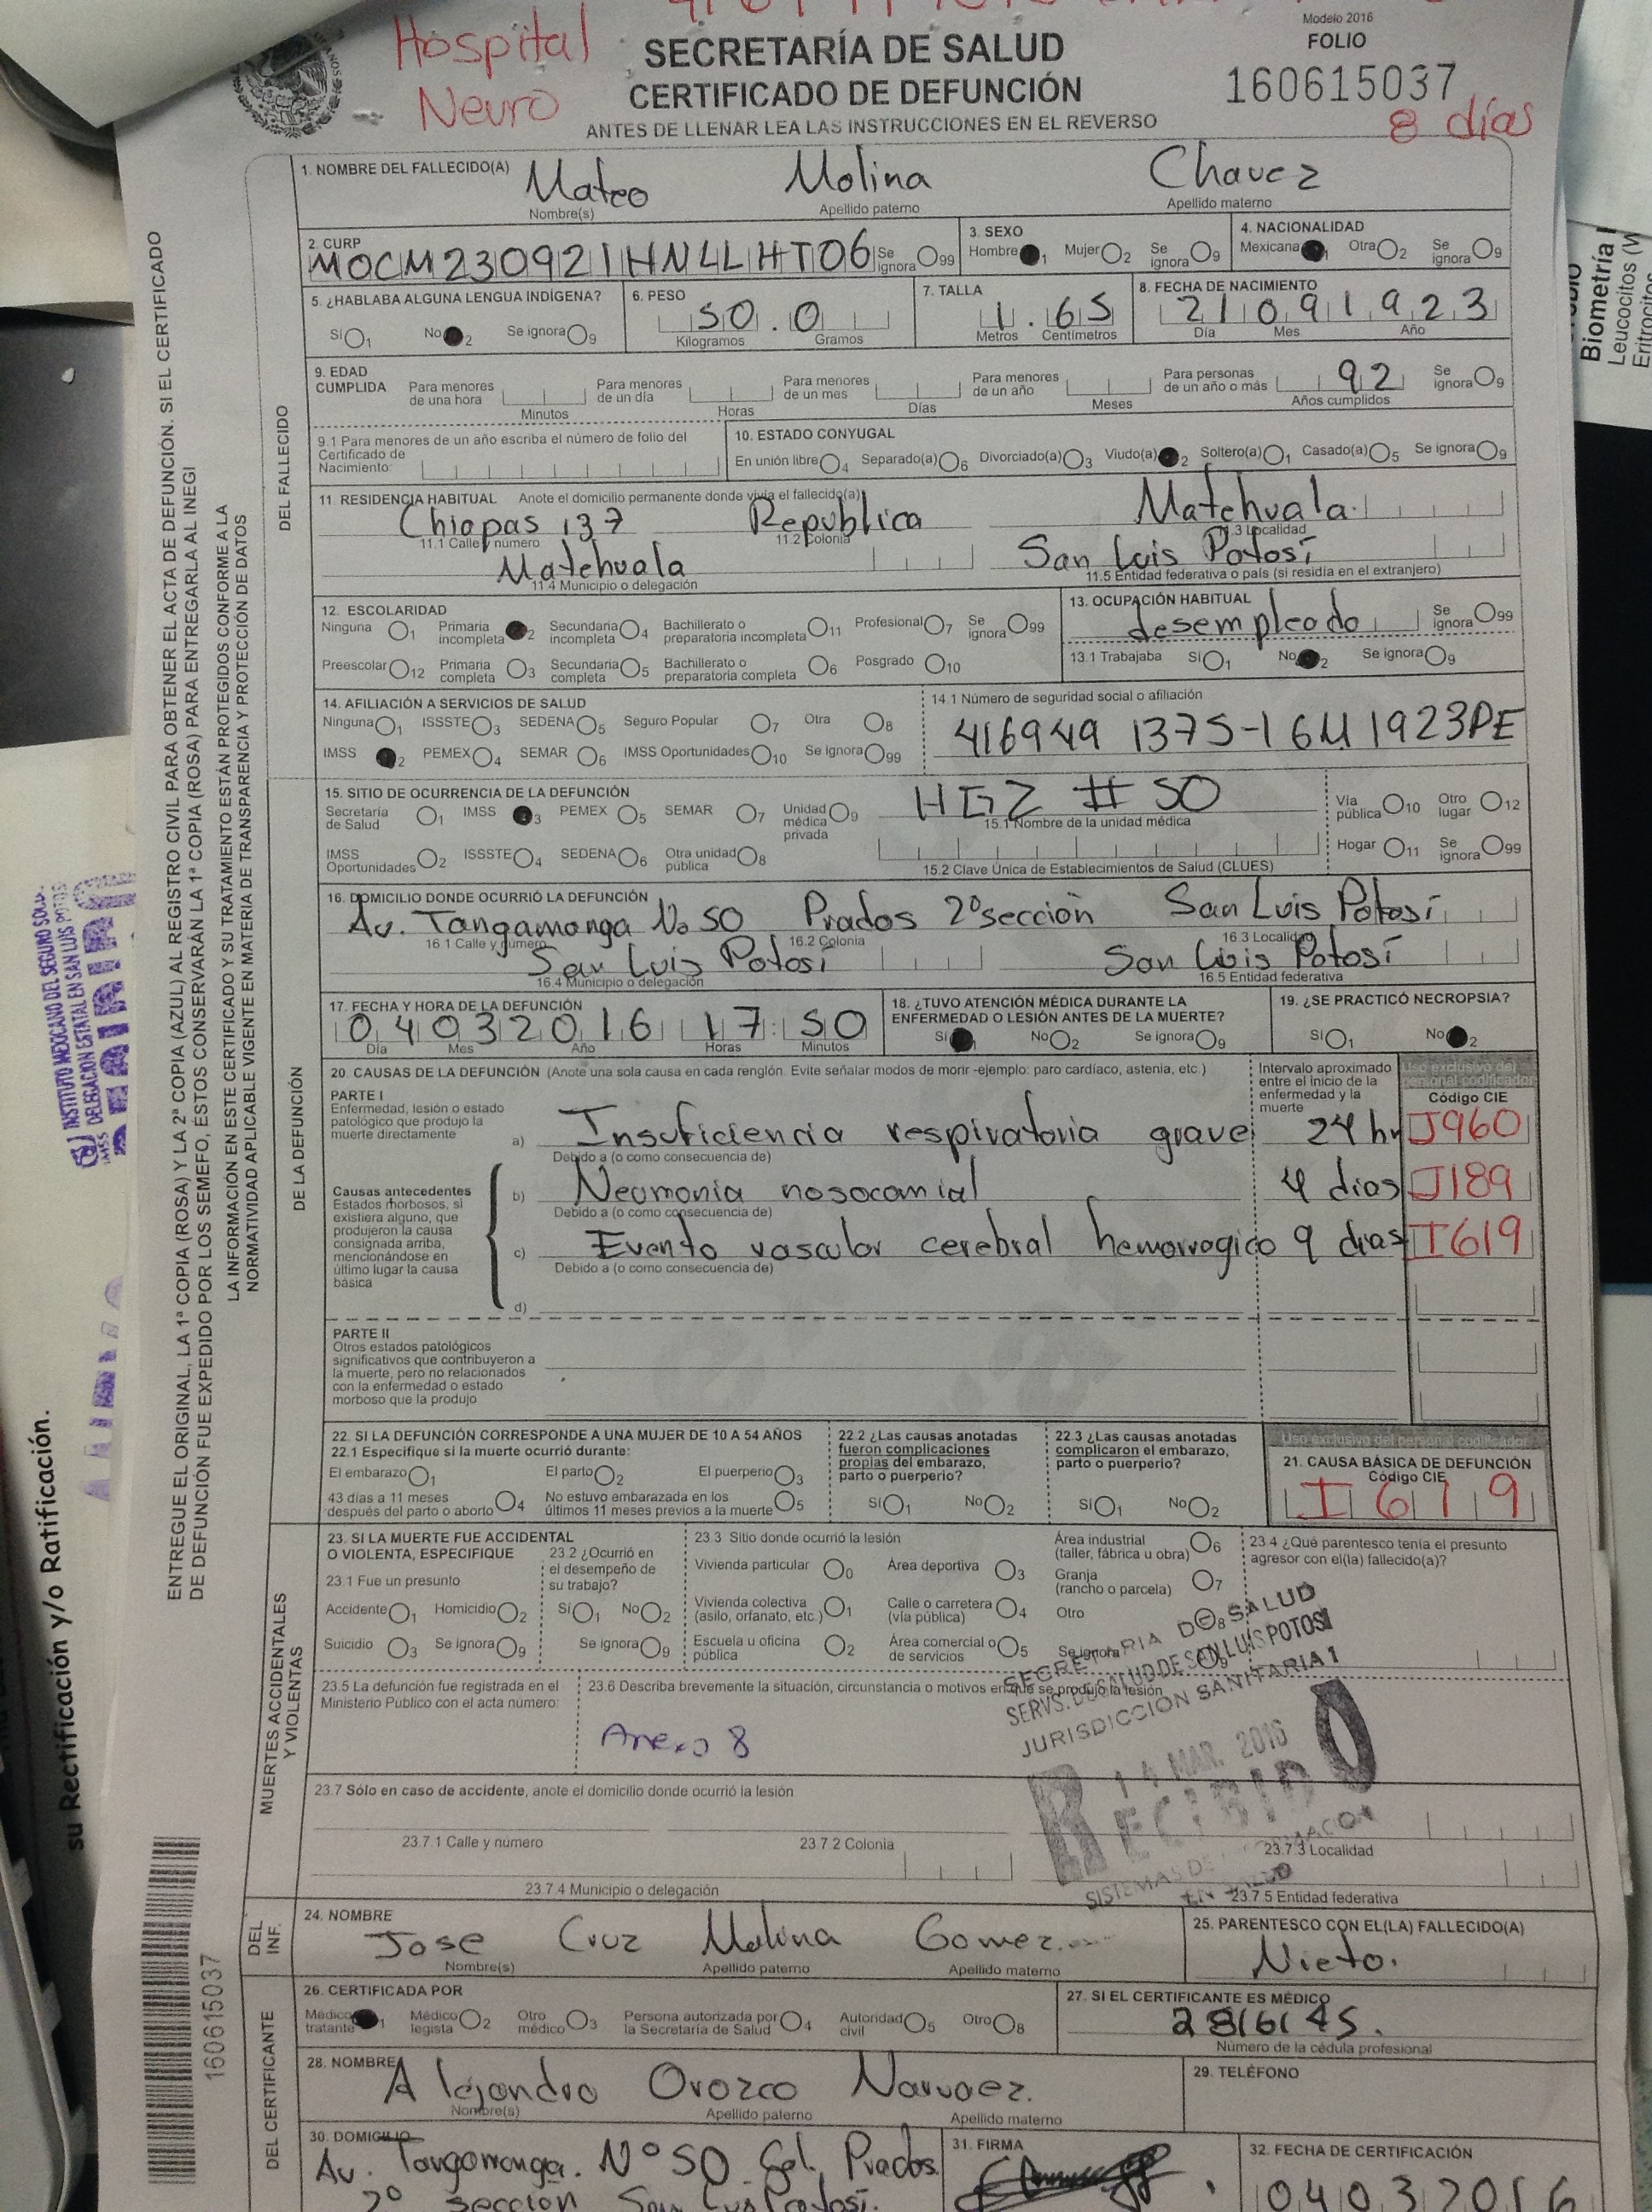 Hospital
Neuro
SECRETARÍA DE SALUD
CERTIFICADO DE DEFUNCIÓN
ANTES DE LLENAR LEA LAS INSTRUCCIONES EN EL REVERSO
Modelo 2016
FOLIO
160615037
8 días
1. NOMBRE DEL FALLECIDO(A) Mateo Molina Chavez
Nombre(s) Apellido paterno Apellido materno
2. CURP MOCM230921HNLLHT06 Se ignora 99
3. SEXO Hombre 1 Mujer 2 Se ignora 9
4. NACIONALIDAD Mexicana 1 Otra 2 Se ignora 9
5. ¿HABLABA ALGUNA LENGUA INDÍGENA? Sí 1 No 2 Se ignora 9
6. PESO 50.0 Kilogramos Gramos
7. TALLA 1.65 Metros Centímetros
8. FECHA DE NACIMIENTO 21091923 Día Mes Año
9. EDAD CUMPLIDA Para menores de una hora Minutos Para menores de un día Horas Para menores de un mes Días Para menores de un año Meses Para personas de un año o más 92 Años cumplidos Se ignora 9
9.1 Para menores de un año escriba el número de folio del Certificado de Nacimiento:
10. ESTADO CONYUGAL
En unión libre 4 Separado(a) 6 Divorciado(a) 3 Viudo(a) 2 Soltero(a) 1 Casado(a) 5 Se ignora 9
11. RESIDENCIA HABITUAL Anote el domicilio permanente donde vivía el fallecido(a)
Chiapas 137 Republica Matehuala
11.1 Calle y número 11.2 Colonia 11.3 Localidad
Matehuala San Luis Potosí
11.4 Municipio o delegación 11.5 Entidad federativa o país (si residía en el extranjero)
12. ESCOLARIDAD
Ninguna 1 Primaria incompleta 2 Secundaria incompleta 4 Bachillerato o preparatoria incompleta 11 Profesional 7 Se ignora 99
Preescolar 12 Primaria completa 3 Secundaria completa 5 Bachillerato o preparatoria completa 6 Posgrado 10
13. OCUPACIÓN HABITUAL
desempleado Se ignora 99
13.1 Trabajaba Sí 1 No 2 Se ignora 9
14. AFILIACIÓN A SERVICIOS DE SALUD
Ninguna 1 ISSSTE 3 SEDENA 5 Seguro Popular 7 Otra 8
IMSS 2 PEMEX 4 SEMAR 6 IMSS Oportunidades 10 Se ignora 99
14.1 Número de seguridad social o afiliación
416949 1375-16M1923PE
15. SITIO DE OCURRENCIA DE LA DEFUNCIÓN
Secretaría de Salud 1 IMSS 3 PEMEX 5 SEMAR 7 Unidad médica privada 9
IMSS Oportunidades 2 ISSSTE 4 SEDENA 6 Otra unidad pública 8
HGZ # 50
15.1 Nombre de la unidad médica
15.2 Clave Única de Establecimientos de Salud (CLUES)
Vía pública 10 Otro lugar 12
Hogar 11 Se ignora 99
16. DOMICILIO DONDE OCURRIÓ LA DEFUNCIÓN
Av. Tangamanga No 50 Prados 2º sección San Luis Potosí
16.1 Calle y número 16.2 Colonia 16.3 Localidad
San Luis Potosí San Luis Potosí
16.4 Municipio o delegación 16.5 Entidad federativa
17. FECHA Y HORA DE LA DEFUNCIÓN
04032016 17:50
Día Mes Año Horas Minutos
18. ¿TUVO ATENCIÓN MÉDICA DURANTE LA ENFERMEDAD O LESIÓN ANTES DE LA MUERTE?
Sí 1 No 2 Se ignora 9
19. ¿SE PRACTICÓ NECROPSIA?
Sí 1 No 2
20. CAUSAS DE LA DEFUNCIÓN (Anote una sola causa en cada renglón. Evite señalar modos de morir -ejemplo: paro cardíaco, astenia, etc.)
Intervalo aproximado entre el inicio de la enfermedad y la muerte
Uso exclusivo del personal codificador
Código CIE
PARTE I
Enfermedad, lesión o estado patológico que produjo la muerte directamente
a) Insuficiencia respiratoria grave 24 hr J960
Debido a (o como consecuencia de)
Causas antecedentes
Estados morbosos, si existiera alguno, que produjeron la causa consignada arriba, mencionándose en último lugar la causa básica
b) Neumonia nosocomial 4 dias J189
Debido a (o como consecuencia de)
c) Evento vascular cerebral hemorragico 9 dias I619
Debido a (o como consecuencia de)
d)
PARTE II
Otros estados patológicos significativos que contribuyeron a la muerte, pero no relacionados con la enfermedad o estado morboso que la produjo
22. SI LA DEFUNCIÓN CORRESPONDE A UNA MUJER DE 10 A 54 AÑOS
22.1 Especifique si la muerte ocurrió durante:
El embarazo 1 El parto 2 El puerperio 3
43 días a 11 meses después del parto o aborto 4 No estuvo embarazada en los últimos 11 meses previos a la muerte 5
22.2 ¿Las causas anotadas fueron complicaciones propias del embarazo, parto o puerperio?
Sí 1 No 2
22.3 ¿Las causas anotadas complicaron el embarazo, parto o puerperio?
Sí 1 No 2
Uso exclusivo del personal codificador
21. CAUSA BÁSICA DE DEFUNCIÓN
Código CIE
I619
23. SI LA MUERTE FUE ACCIDENTAL O VIOLENTA, ESPECIFIQUE
23.1 Fue un presunto
Accidente 1 Homicidio 2
Suicidio 3 Se ignora 9
23.2 ¿Ocurrió en el desempeño de su trabajo?
Sí 1 No 2
Se ignora 9
23.3 Sitio donde ocurrió la lesión
Vivienda particular 0 Área deportiva 3 Área industrial (taller, fábrica u obra) 6
Vivienda colectiva (asilo, orfanato, etc.) 1 Calle o carretera (vía pública) 4 Granja (rancho o parcela) 7
Escuela u oficina pública 2 Área comercial o de servicios 5 Otro 8
Se ignora 9
23.4 ¿Qué parentesco tenía el presunto agresor con el(la) fallecido(a)?
23.5 La defunción fue registrada en el Ministerio Público con el acta número:
23.6 Describa brevemente la situación, circunstancia o motivos en que se produjo la lesión
Anexo 8
SECRETARIA DE SALUD
SERVS. DE SALUD DE SAN LUIS POTOSI
JURISDICCION SANITARIA 1
14 MAR. 2016
RECIBIDO
SISTEMAS DE INFORMACION
EN SALUD
23.7 Sólo en caso de accidente, anote el domicilio donde ocurrió la lesión
23.7.1 Calle y número 23.7.2 Colonia 23.7.3 Localidad
23.7.4 Municipio o delegación 23.7.5 Entidad federativa
24. NOMBRE
Jose Cruz Molina Gomez
Nombre(s) Apellido paterno Apellido materno
25. PARENTESCO CON EL(LA) FALLECIDO(A)
Nieto.
26. CERTIFICADA POR
Médico tratante 1 Médico legista 2 Otro médico 3 Persona autorizada por la Secretaría de Salud 4 Autoridad civil 5 Otro 8
27. SI EL CERTIFICANTE ES MÉDICO
2816145.
Número de la cédula profesional
28. NOMBRE
Alejandro Orozco Narvaez.
Nombre(s) Apellido paterno Apellido materno
29. TELÉFONO
30. DOMICILIO
Av. Tangamanga. Nº 50. Col. Prados
2º sección San Luis Potosí.
31. FIRMA
32. FECHA DE CERTIFICACIÓN
04032016
DEL FALLECIDO
DE LA DEFUNCIÓN
MUERTES ACCIDENTALES Y VIOLENTAS
DEL INF.
DEL CERTIFICANTE
ENTREGUE EL ORIGINAL, LA 1ª COPIA (ROSA) Y LA 2ª COPIA (AZUL) AL REGISTRO CIVIL PARA OBTENER EL ACTA DE DEFUNCIÓN. SI EL CERTIFICADO
DE DEFUNCIÓN FUE EXPEDIDO POR LOS SEMEFO, ESTOS CONSERVARÁN LA 1ª COPIA (ROSA) PARA ENTREGARLA AL INEGI
LA INFORMACIÓN EN ESTE CERTIFICADO Y SU TRATAMIENTO ESTÁN PROTEGIDOS CONFORME A LA
NORMATIVIDAD APLICABLE VIGENTE EN MATERIA DE TRANSPARENCIA Y PROTECCIÓN DE DATOS
160615037
su Rectificación y/o Ratificación.
INSTITUTO MEXICANO DEL SEGURO SOCIAL
DELEGACION ESTATAL EN SAN LUIS POTOSI
IMSS
Biometría
Leucocitos